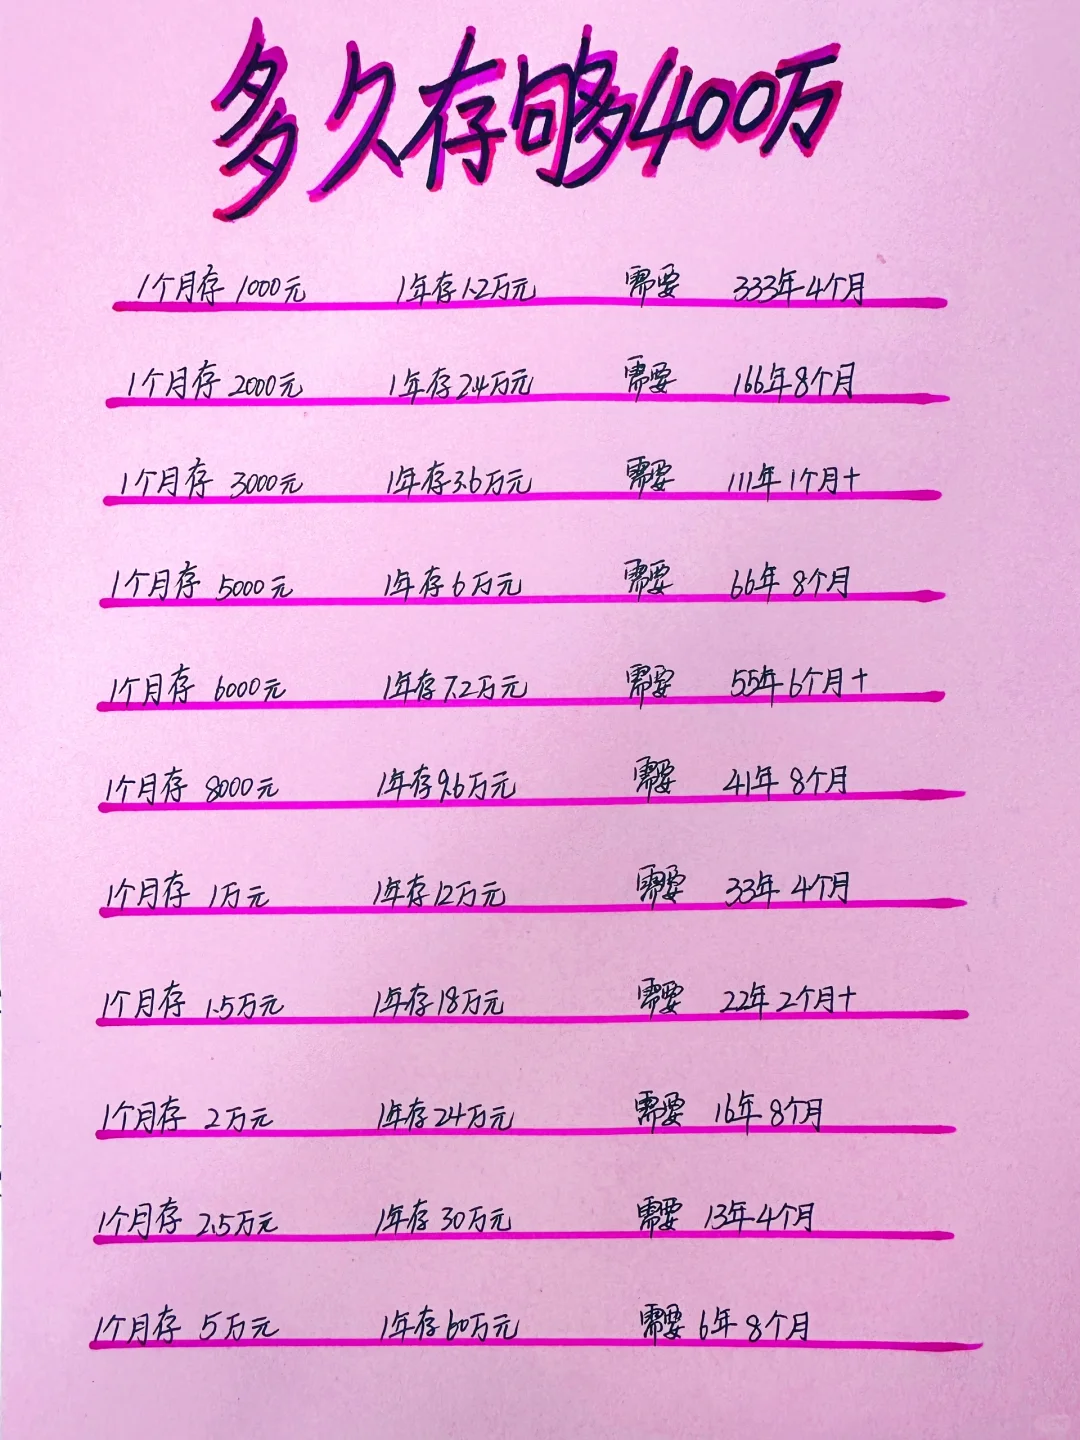 多久存够400万
1个月存 1000元 1年存1.2万元 需要 333年4个月
1个月存 2000元 1年存2.4万元 需要 166年8个月
1个月存 3000元 1年存3.6万元 需要 111年1个月+
1个月存 5000元 1年存6万元 需要 66年8个月
1个月存 6000元 1年存7.2万元 需要 55年6个月+
1个月存 8000元 1年存9.6万元 需要 41年8个月
1个月存 1万元 1年存12万元 需要 33年4个月
1个月存 1.5万元 1年存18万元 需要 22年2个月+
1个月存 2万元 1年存24万元 需要 16年8个月
1个月存 2.5万元 1年存30万元 需要 13年4个月
1个月存 5万元 1年存60万元 需要 6年8个月